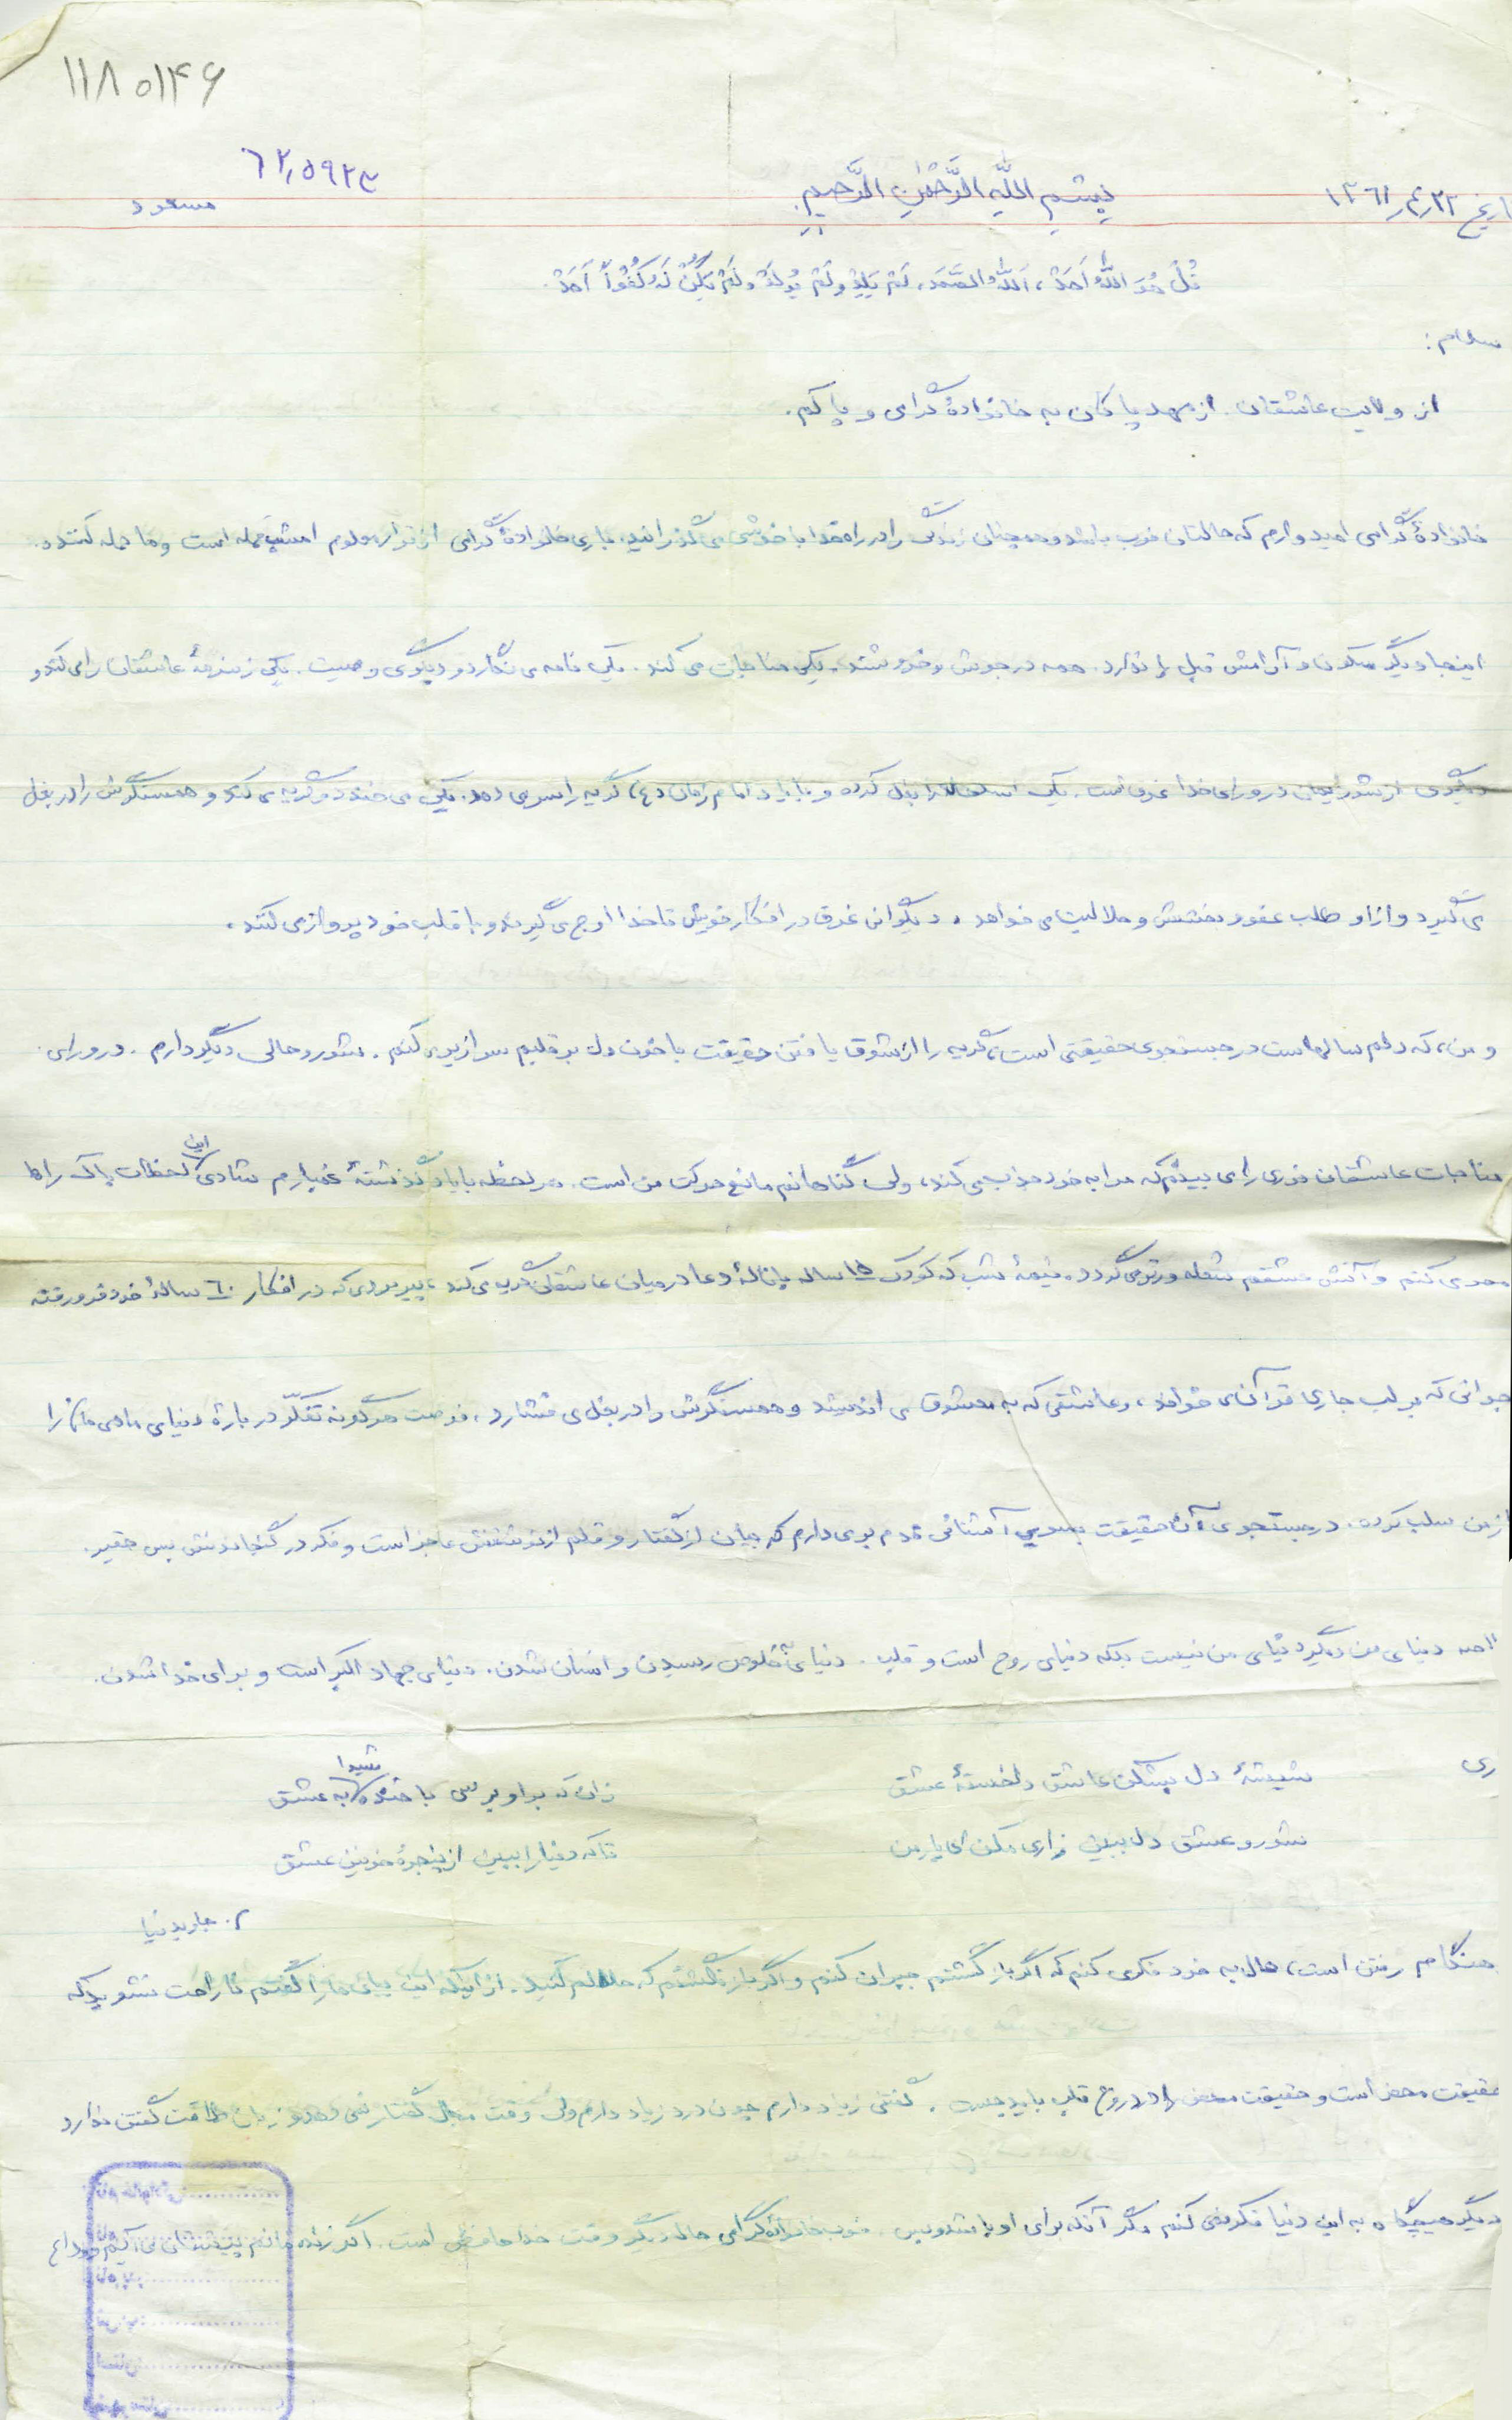 ۱۱۸۰۱۴۶
۶۲٫۵۹۲۳
تاریخ ۱۳۶۱٫۴٫۲۲ بِسْمِ اللهِ الرَّحْمٰنِ الرَّحیمِ مسعود
قُلْ هُوَ اللهُ اَحَدْ، اَللهُ الصَّمَد، لَمْ یَلِدْ وَ لَمْ یُولَدْ وَ لَمْ یَکُنْ لَهُ کُفُواً اَحَدْ.
سلام:
از ولایت عاشقان. از مهد پاکان به خانوادهٔ گرامی و پاکم.
خانوادهٔ گرامی امیدوارم که حالتان خوب باشد و همچنان زندگی را در راه خدا با خوشی می‌گذرانید. باری خانوادهٔ گرامی از قرار معلوم امشب حمله است و ما حمله کننده.
اینجا دیگر سکون و آرامش قبل را ندارد. همه در جوش و خروشند. یکی مناجات می‌کند. یکی نامه می‌نگارد و دیگری وصیت. یکی زمزمهٔ عاشقان را می‌کند و
دیگری از شور ایمان در ورای خدا غرق است. یکی اسلحه‌اش را بغل کرده و با یاد امام زمان (ع) گریه را سر می‌دهد. یکی می‌خندد و گریه می‌کند و همسنگرش را در بغل
می‌گیرد و از او طلب عفو و بخشش و حلالیت می‌خواهد. دیگران غرق در افکار خویش تا خدا اوج می‌گیرند و با قلب خود پرواز می‌کنند.
و من، که دلم سالهاست در جستجوی حقیقتی است، گریه را از شوق یافتن حقیقت با خون دل بر قلبم سرازیر می‌کنم. شور و حالی دیگر دارم. در ورای
مناجات عاشقان نوری را می‌بینم که مرا به خود جذب می‌کند، ولی گناهانم مانع حرکت من است. هر لحظه با یاد گذشتهٔ غمبارم شادی این لحظات پاک را
محو می‌کنم و آتش عشقم شعله‌ورتر می‌گردد. نیمهٔ شب که کودک ۱۵ ساله با نالهٔ دعا در میان عاشقان گریه می‌کند، پیرمردی که در افکار ۶۰ سالهٔ خود فرو رفته
جوانی که بر لب جاری قرآن می‌خواند، و عاشقی که به معشوق می‌اندیشد و همسنگرش را در بغل می‌فشارد، فرصت هرگونه تفکّر دربارهٔ دنیای مادی را
از من سلب کرده. در جستجوی آن حقیقت بسوی آشنائی قدم برمی‌دارم که بیان از گفتار و قلم از نوشتنش عاجز است و فکر در گنجاندنش بس حقیر.
دنیای من دیگر دنیای من نیست بلکه دنیای روح است و قلب. دنیای به خلوص رسیدن و انسان شدن. دنیای جهاد اکبر است و برای خدا شدن.
ری شیشهٔ دل بشکن عاشق دلخستهٔ عشق زان که بر او برسی با خنده شیدا به عشق
شور و عشق دل ببین زاری مکن ای یار من تا که دنیا را ببین از پنجرهٔ خونین عشق
م. جاوید نیا
هنگام رفتن است، حال به خود فکر می‌کنم که اگر بازگشتم جبران کنم و اگر بازنگشتم که حلالم کنید. از اینکه این بیان‌ها را گفتم ناراحت نشوید که
حقیقت محض است و حقیقت محض را در روح قلب باید جست. گفتنی زیاد دارم چون درد زیاد دارم ولی وقت مجال گفتار نمی‌دهد و زبان طاقت گفتن ندارد
دیگر هیچگاه به این دنیا فکر نمی‌کنم مگر آنکه برای او باشد و بس. خوب خانوادهٔ گرامی حال دیگر وقت خداحافظی است. اگر زنده ماندم پیشتان می‌آیم